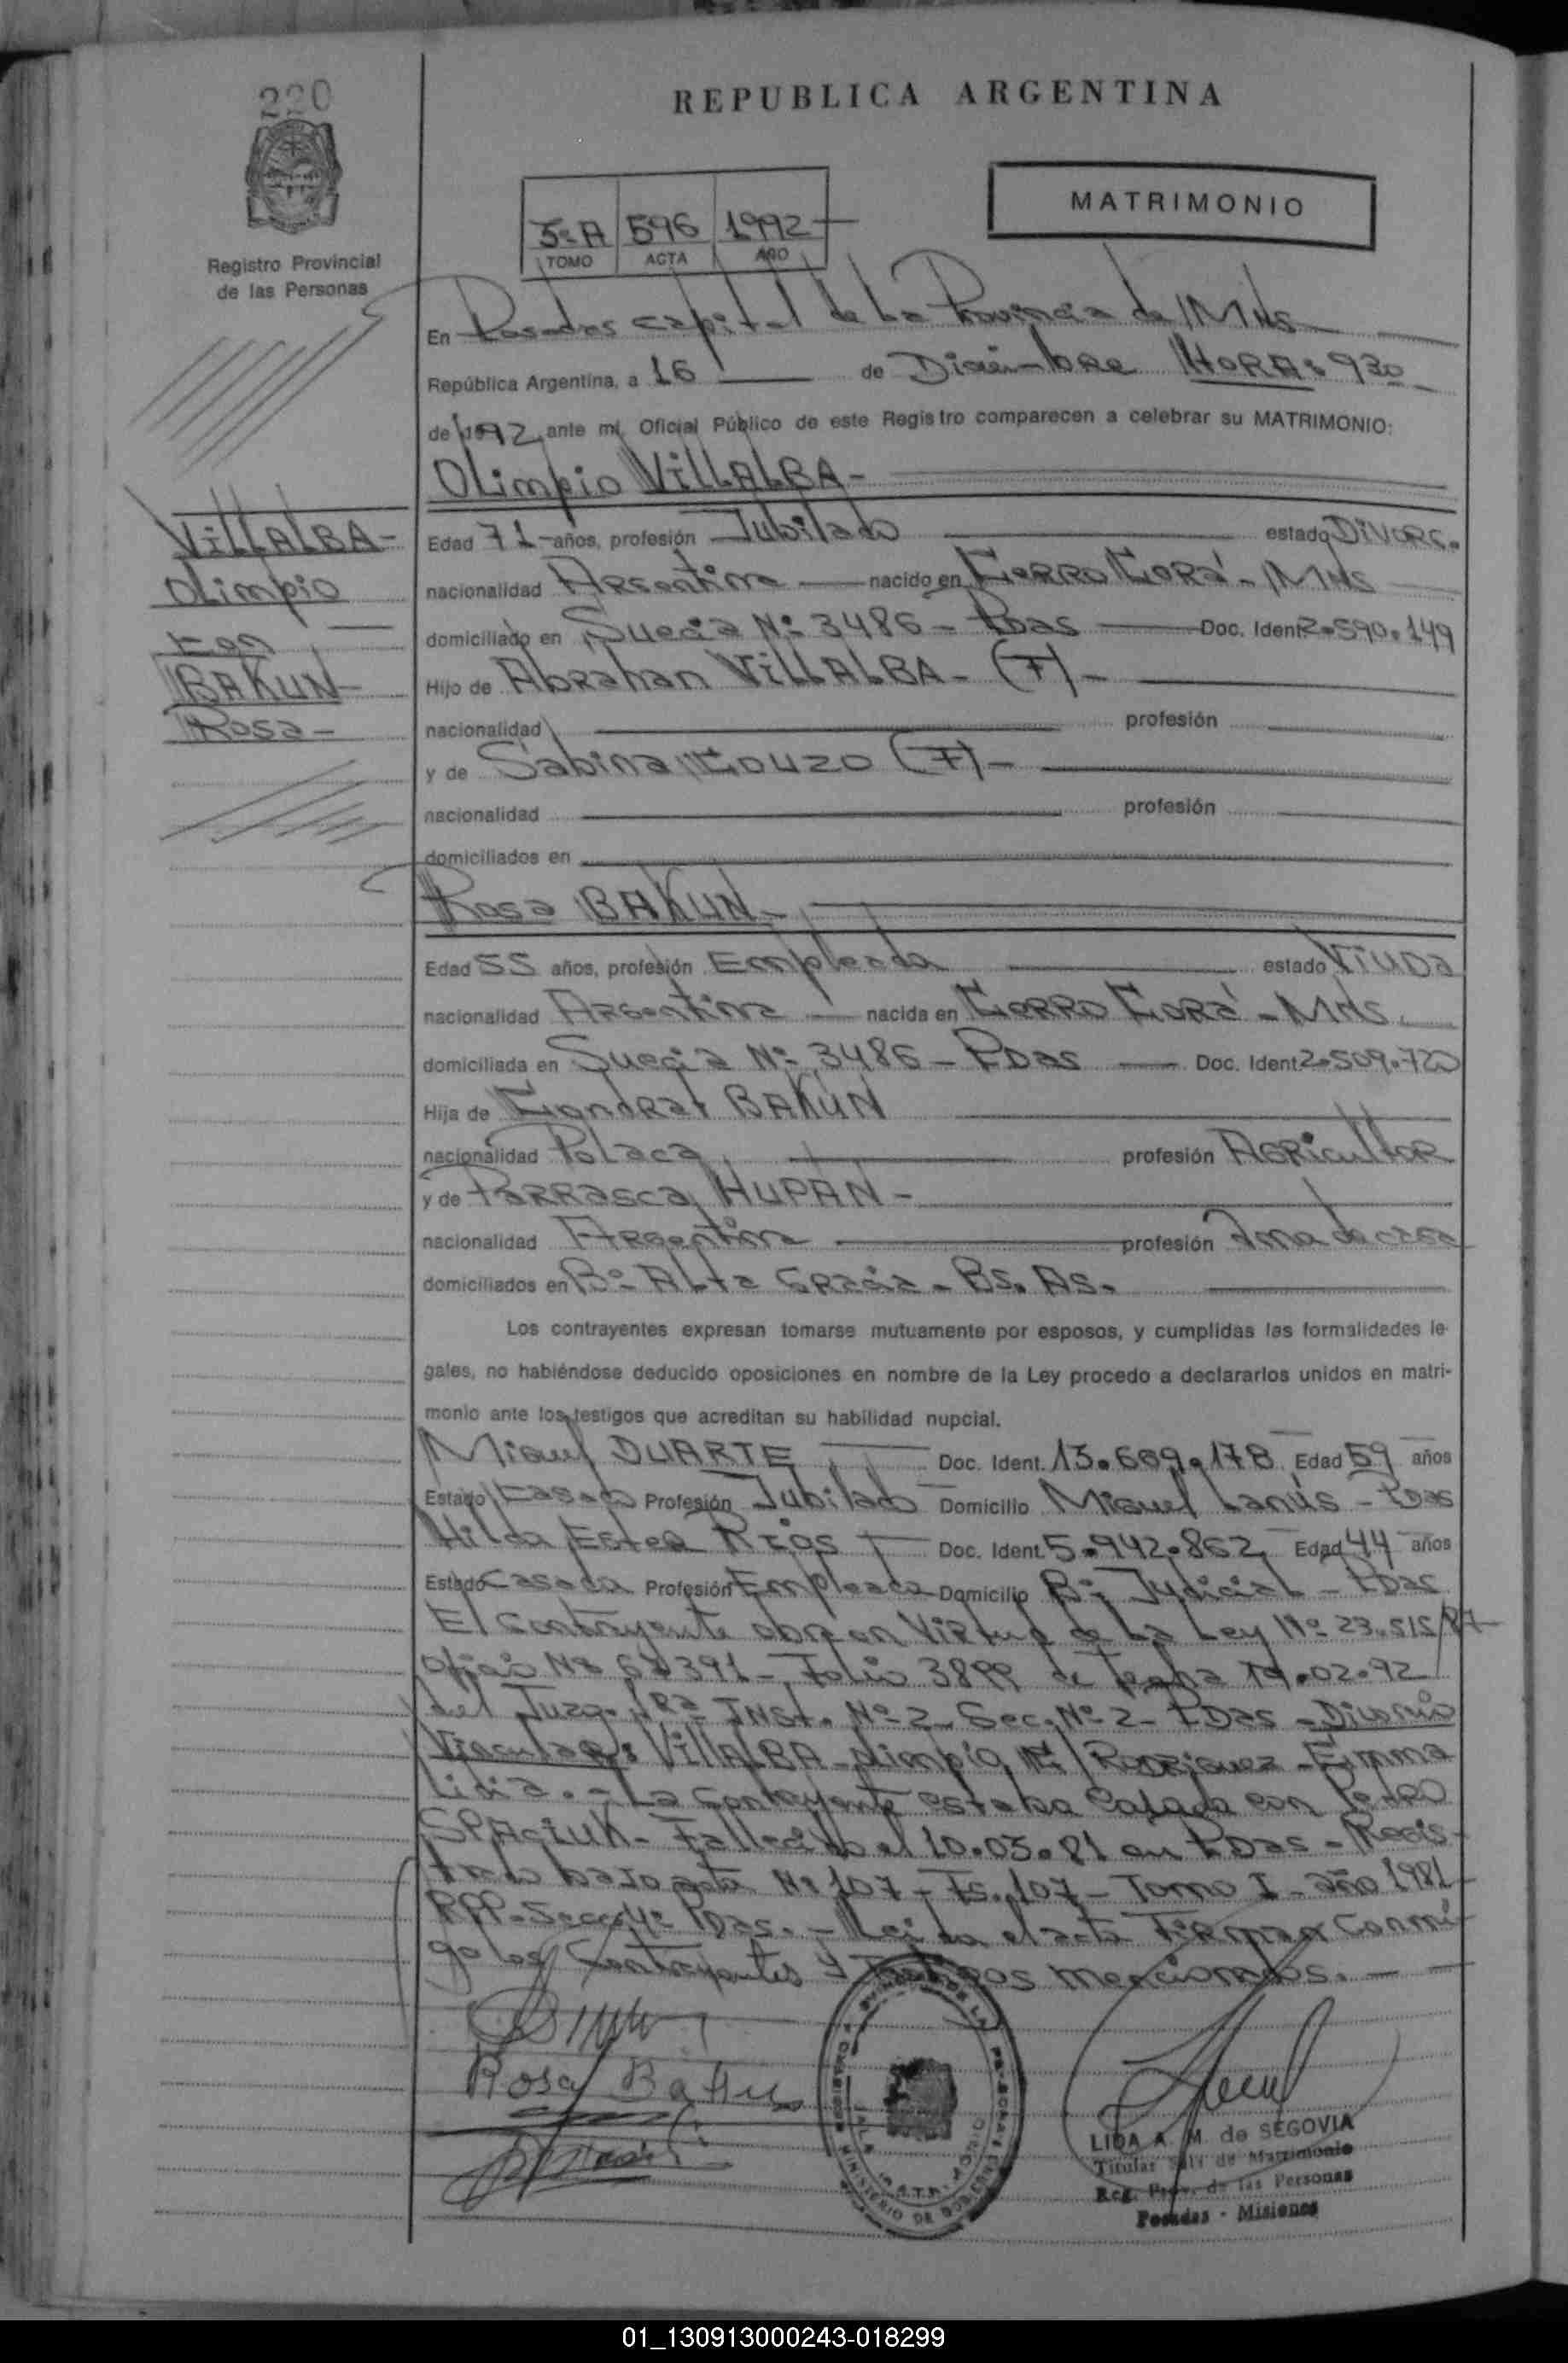 220
REPUBLICA ARGENTINA
MATRIMONIO
3º A 596 1992
TOMO ACTA AÑO
Registro Provincial
de las Personas
En Posadas capital de La Provincia de Mns
República Argentina, a 16 de Diciembre HORA: 930
de 1992, ante mí, Oficial Público de este Registro comparecen a celebrar su MATRIMONIO:
Olimpio VILLALBA-
VILLALBA-
Olimpio
con
BAKUN-
Rosa-
Edad 71 años, profesión Jubilado estado Divorc.
nacionalidad Argentina nacido en Cerro Corá - Mns
domiciliado en Suecia Nº 3486 - Pdas Doc. Ident 2.590.149
Hijo de Abrahan VILLALBA - (F) -
nacionalidad profesión
y de Sabina COUZO (F) -
nacionalidad profesión
domiciliados en
Rosa BAKUN -
Edad 55 años, profesión Empleada estado Viuda
nacionalidad Argentina nacida en Cerro Corá - Mns.
domiciliada en Suecia Nº 3486 - Pdas Doc. Ident 2.509.720
Hija de Condrat BAKUN
nacionalidad Polaca profesión Agricultor
y de Parrasca HUPAN -
nacionalidad Argentina profesión Ama de casa
domiciliados en Bº Alta Gracia - Bs. As.
Los contrayentes expresan tomarse mutuamente por esposos, y cumplidas las formalidades le-
gales, no habiéndose deducido oposiciones en nombre de la Ley procedo a declararlos unidos en matri-
monio ante los testigos que acreditan su habilidad nupcial.
Miguel DUARTE Doc. Ident. 13.669.178 Edad 59 años
Estado Casado Profesión Jubilado Domicilio Miguel Lanús - Pdas
Hilda Ester Rios Doc. Ident. 5.942.862 Edad 44 años
Estado Casada Profesión Empleada Domicilio Bº Judicial - Pdas
El contrayente obra en Virtud de la Ley Nº 23.515/87
oficio Nº 391 - Folio 3899 de fecha 19.02.92
del Juzg. 1ra INst. Nº 2 Sec. Nº 2 - Pdas - Divorcio
Vincular: VILLALBA - Olimpio C/ Rodriguez - Emma
Lidia. - La Contrayente estaba Casada con Pedro
SPACIUK - Fallecido el 10.03.81 en Pdas - Regis-
trado bajo acta Nº 107 - Fs. 107 - Tomo I - año 1981
RPP - Secc. 4º Pdas. - Leida el acta Firman Conmi-
go los Contrayentes y Testigos mencionados. -
Rosa Bakun
LIDA A. M. de SEGOVIA
Titular de Matrimonio
Reg. Prov. de las Personas
Posadas - Misiones
01_130913000243-018299